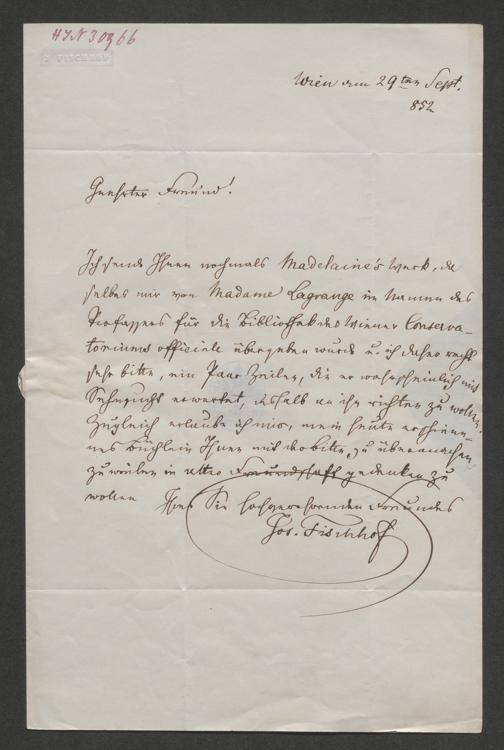 HIN 30966
J. FISCHHOF
Wien am 29ten Sept.
852
Geehrter Freund!
Ich sende Ihnen nochmals Madelaine's Werk, da
selbes mir von Madame Lagrange im Namen des
Verfassers für die Bibliothek des Wiener Conserva-
toriums officiell übergeben wurde u. ich daher recht
sehr bitte, ein Paar Zeilen, die er wahrscheinlich mit
Sehnsucht erwartet, deshalb an ihn richten zu wollen.
Zugleich erlaube ich mir, mein heute erschiene-
nes Büchlein Ihnen mit der Bitte, zu übermachen,
zuweilen in alter Freundschaft gedenken zu
wollen Ihres Sie hochverehrenden Freundes
Jos. Fischhof